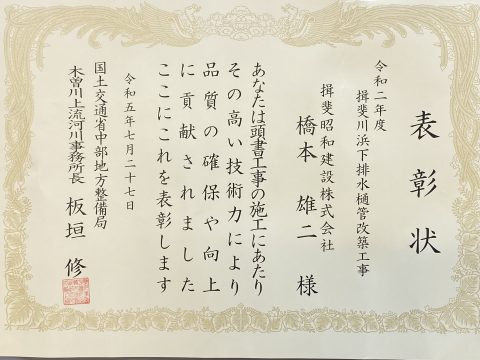 表彰状
令和二年度
揖斐川浜下排水樋管改築工事
揖斐昭和建設株式会社
橋本雄二様
あなたは頭書工事の施工にあたり
その高い技術力により
品質の確保や向上
に貢献されました
ここにこれを表彰します
令和五年七月二十七日
国土交通省中部地方整備局
木曽川上流河川事務所長 板垣修